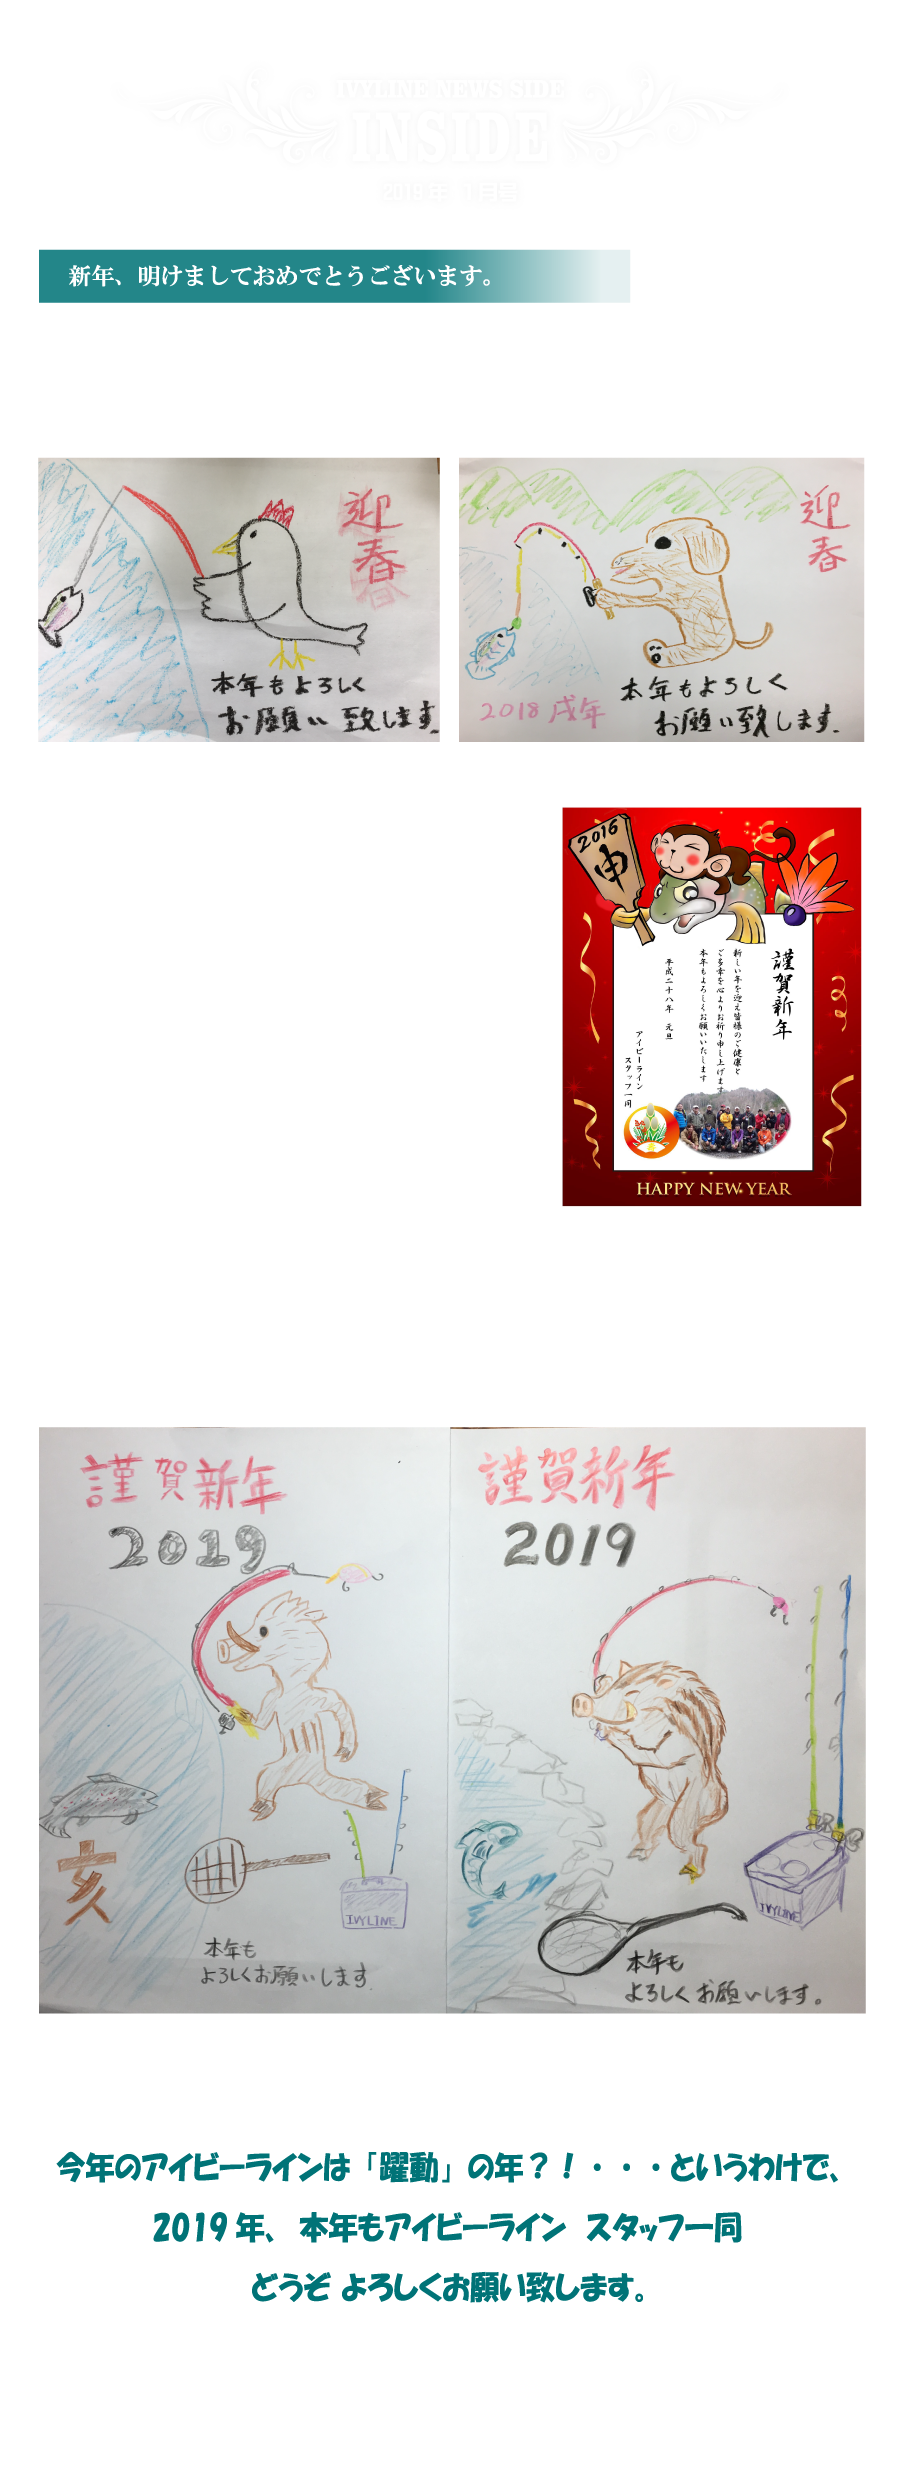 IVYLINE NEWS SIDE
INSIDE
2019年 1月号
新年、明けましておめでとうございます。
迎春
本年もよろしく
お願い致します。
迎春
2018 戌年
本年もよろしく
お願い致します。
2016
申
謹賀新年
新しい年を迎え皆様のご健康と
ご多幸を心よりお祈り申し上げます
本年もよろしくお願いいたします
平成二十八年 元旦
アイビーライン
スタッフ一同
HAPPY NEW YEAR
謹賀新年
2019
亥
IVYLINE
本年も
よろしくお願いします。
謹賀新年
2019
IVYLINE
本年も
よろしくお願いします。
今年のアイビーラインは「躍動」の年？！・・・というわけで、
2019年、本年もアイビーライン スタッフ一同
どうぞ よろしくお願い致します。